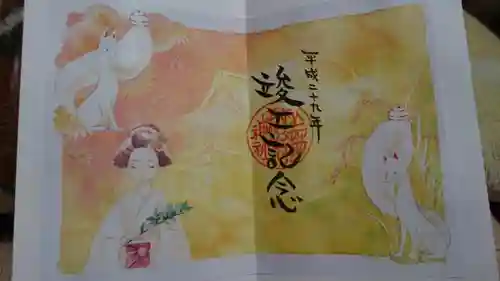 平成二十九年
竣工記念